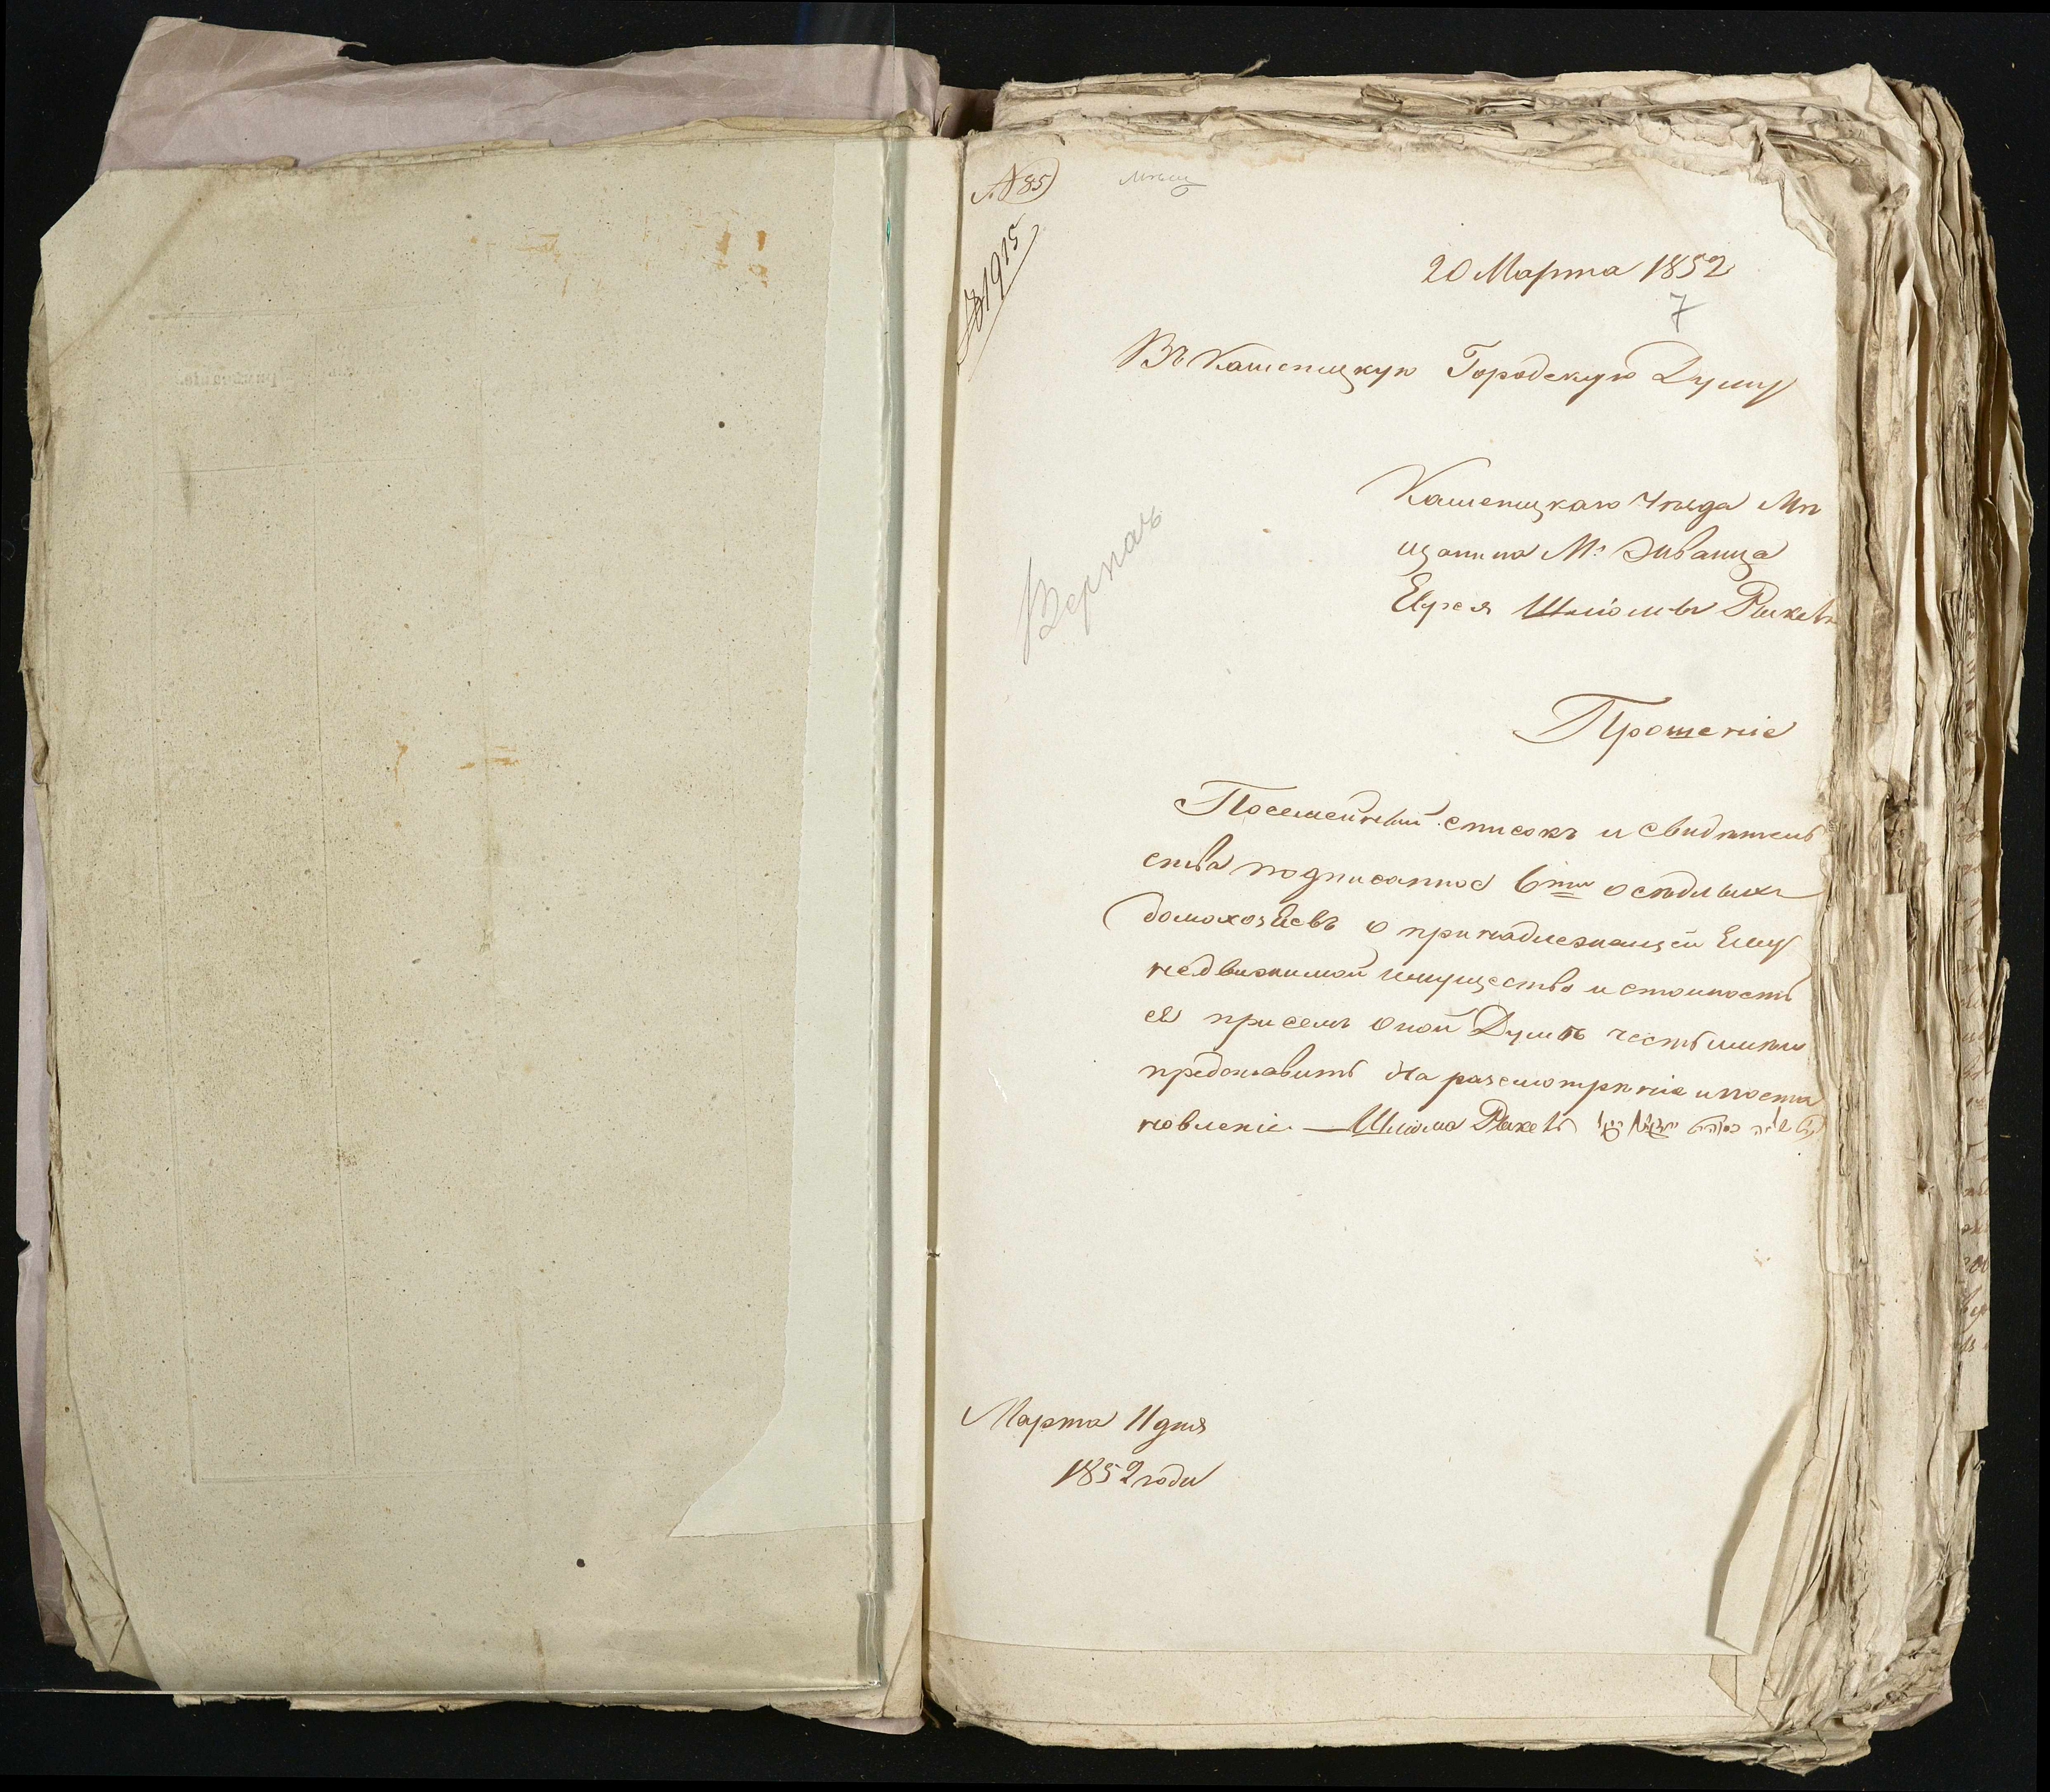 № 85
№ 1915
20 Марта 1852
7
Въ Каменецкую Городскую Думу
Каменецкаго Уѣзда Мѣ
щанина М: Жванца
Еврея Шліомы
Прошеніе
Посемейный списокъ и свидѣтель
ства подписанное 6ти осѣдлыхъ
домохозяевъ о принадлежащей Ему
недвижимой имуществе и стоимость
ея при семъ Оной Думѣ честь имѣю
предоставить На разсмотрѣніе и поста
новленіе — Шліома
Марта 11 дня
1852 года